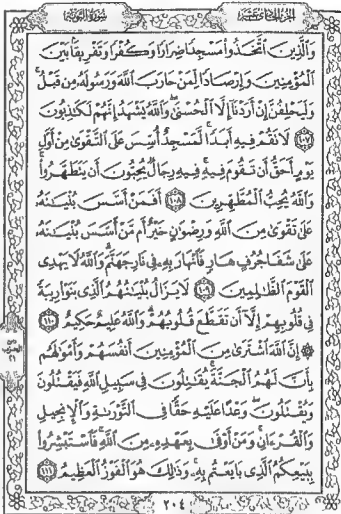 الجزء الحادي عشر
سورة التوبة
وَالَّذِينَ اتَّخَذُوا مَسْجِدًا ضِرَارًا وَكُفْرًا وَتَفْرِيقًا بَيْنَ
الْمُؤْمِنِينَ وَإِرْصَادًا لِّمَنْ حَارَبَ اللَّهَ وَرَسُولَهُ مِن قَبْلُ ۚ
وَلَيَحْلِفُنَّ إِنْ أَرَدْنَا إِلَّا الْحُسْنَىٰ ۖ وَاللَّهُ يَشْهَدُ إِنَّهُمْ لَكَاذِبُونَ
﴿١٠٧﴾ لَا تَقُمْ فِيهِ أَبَدًا ۚ لَّمَسْجِدٌ أُسِّسَ عَلَى التَّقْوَىٰ مِنْ أَوَّلِ
يَوْمٍ أَحَقُّ أَن تَقُومَ فِيهِ ۚ فِيهِ رِجَالٌ يُحِبُّونَ أَن يَتَطَهَّرُوا ۚ
وَاللَّهُ يُحِبُّ الْمُطَّهِّرِينَ ﴿١٠٨﴾ أَفَمَنْ أَسَّسَ بُنْيَانَهُ
عَلَىٰ تَقْوَىٰ مِنَ اللَّهِ وَرِضْوَانٍ خَيْرٌ أَم مَّنْ أَسَّسَ بُنْيَانَهُ
عَلَىٰ شَفَا جُرُفٍ هَارٍ فَانْهَارَ بِهِ فِي نَارِ جَهَنَّمَ ۗ وَاللَّهُ لَا يَهْدِي
الْقَوْمَ الظَّالِمِينَ ﴿١٠٩﴾ لَا يَزَالُ بُنْيَانُهُمُ الَّذِي بَنَوْا رِيبَةً
فِي قُلُوبِهِمْ إِلَّا أَن تَقَطَّعَ قُلُوبُهُمْ ۗ وَاللَّهُ عَلِيمٌ حَكِيمٌ ﴿١١٠﴾
۞ إِنَّ اللَّهَ اشْتَرَىٰ مِنَ الْمُؤْمِنِينَ أَنفُسَهُمْ وَأَمْوَالَهُم
بِأَنَّ لَهُمُ الْجَنَّةَ ۚ يُقَاتِلُونَ فِي سَبِيلِ اللَّهِ فَيَقْتُلُونَ
وَيُقْتَلُونَ ۖ وَعْدًا عَلَيْهِ حَقًّا فِي التَّوْرَاةِ وَالْإِنجِيلِ
وَالْقُرْآنِ ۚ وَمَنْ أَوْفَىٰ بِعَهْدِهِ مِنَ اللَّهِ ۚ فَاسْتَبْشِرُوا
بِبَيْعِكُمُ الَّذِي بَايَعْتُم بِهِ ۚ وَذَٰلِكَ هُوَ الْفَوْزُ الْعَظِيمُ ﴿١١١﴾
٢٠٤